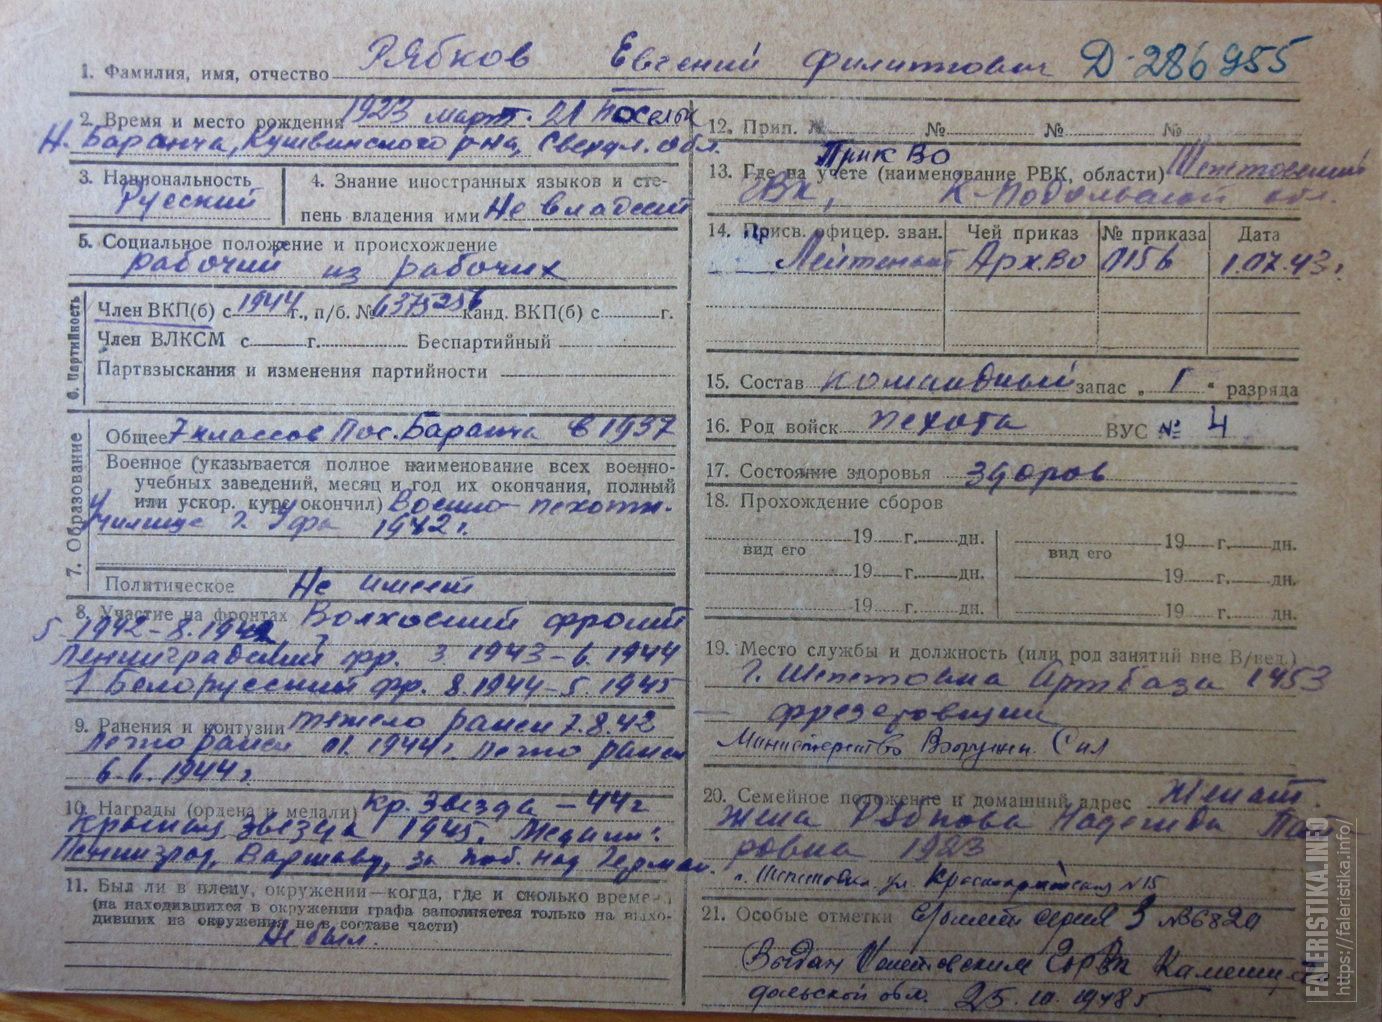 1. Фамилия, имя, отчество Рябков Евгений Филиппович Д-286955
2. Время и место рождения 1923 март. 21 поселок
Н. Баранча, Кушвинского р-на, Свердл. обл.
3. Национальность
Русский
4. Знание иностранных языков и сте-
пень владения ими Не владеет
5. Социальное положение и происхождение
рабочий из рабочих
6. Партийность
Член ВКП(б) с 1944 г., п/б. № 6375256 канд. ВКП(б) с г.
Член ВЛКСМ с г. Беспартийный
Партвзыскания и изменения партийности
7. Образование
Общее 7 классов Пос. Баранча в 1937
Военное (указывается полное наименование всех военно-
учебных заведений, месяц и год их окончания, полный
или ускор. курс окончил) Военно-пехотн.
Училище г. Уфа 1942 г.
Политическое Не имеет
8. Участие на фронтах Волховский фронт
5 1942-8.1942
Ленинградский фр. 3. 1943-6. 1944
1 Белорусский фр. 8.1944-5. 1945
9. Ранения и контузии тяжело ранен 7.8.42
Легко ранен 01.1944г. Легко ранен
6.6.1944г
10. Награды (ордена и медали) Кр. Звезда - 44г
Красная Звезда 1945, Медали:
Ленинград, Варшаву, за поб. над Герман.
11. Был ли в плену, окружении—когда, где и сколько времени
(на находившихся в окружении графа заполняется только на выхо-
дивших из окружения не в составе части)
Не был.
12. Прип. № № № №
13. Где на учете (наименование РВК, области) Шепетовский
ПрикВО
ГВК, К-Подольской обл.
14. Присв. офицер. зван. Чей приказ № приказа Дата
Лейтенант АрхВО 0156 1.07.43г
15. Состав командный запас „ 1 “ разряда
16. Род войск пехота ВУС № 4
17. Состояние здоровья здоров
18. Прохождение сборов
19 г. дн. 19 г. дн.
вид его вид его
19 г. дн. 19 г. дн.
19 г. дн. 19 г. дн.
19. Место службы и должность (или род занятий вне В/вед.)
г. Шепетовка Артбаза 1453
фрезеровщик
Министерство Вооружен. Сил
20. Семейное положение и домашний адрес Женат.
жена Рябкова Надежда
ровна 1923
г. Шепетовка ул. Красноармейская №15
21. Особые отметки серия
Выдан Шепетовским ГорВК Каменец-
дольской обл. 25.
FALERISTIKA.INFO
https://faleristika.info/